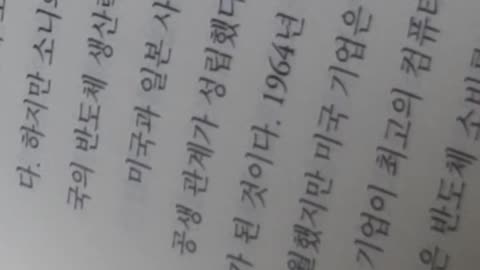 다. 하지만 소니
국의 반도체 생산
미국과 일본
공생 관계가 성립했다
된 것이다. 1964년
했지만 미국 기업은
기업이 최고의 컴퓨터
은 반도체 소비